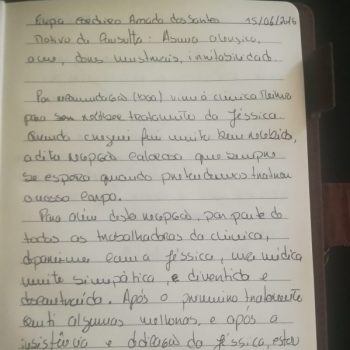 Amado dos Santos 15/06/2016
Motivo da Consulta: Asma alérgica,
acne, dores menstruais, irritabilidade.
Por recomendação (1000) vim à clínica
para ser tratamento da Jéssica.
Quando cheguei fui muito bem recebida,
a dita recepção calorosa que sempre
se espera quando pretendemos tratar
o nosso corpo.
Para além desta recepção, por parte de
todos as trabalhadoras da clínica,
deparei-me com a Jéssica, médica
muito simpática, e divertida e
descontraída. Após o primeiro tratamento
senti algumas melhoras, e após a
insistência e dedicação da Jéssica, estou